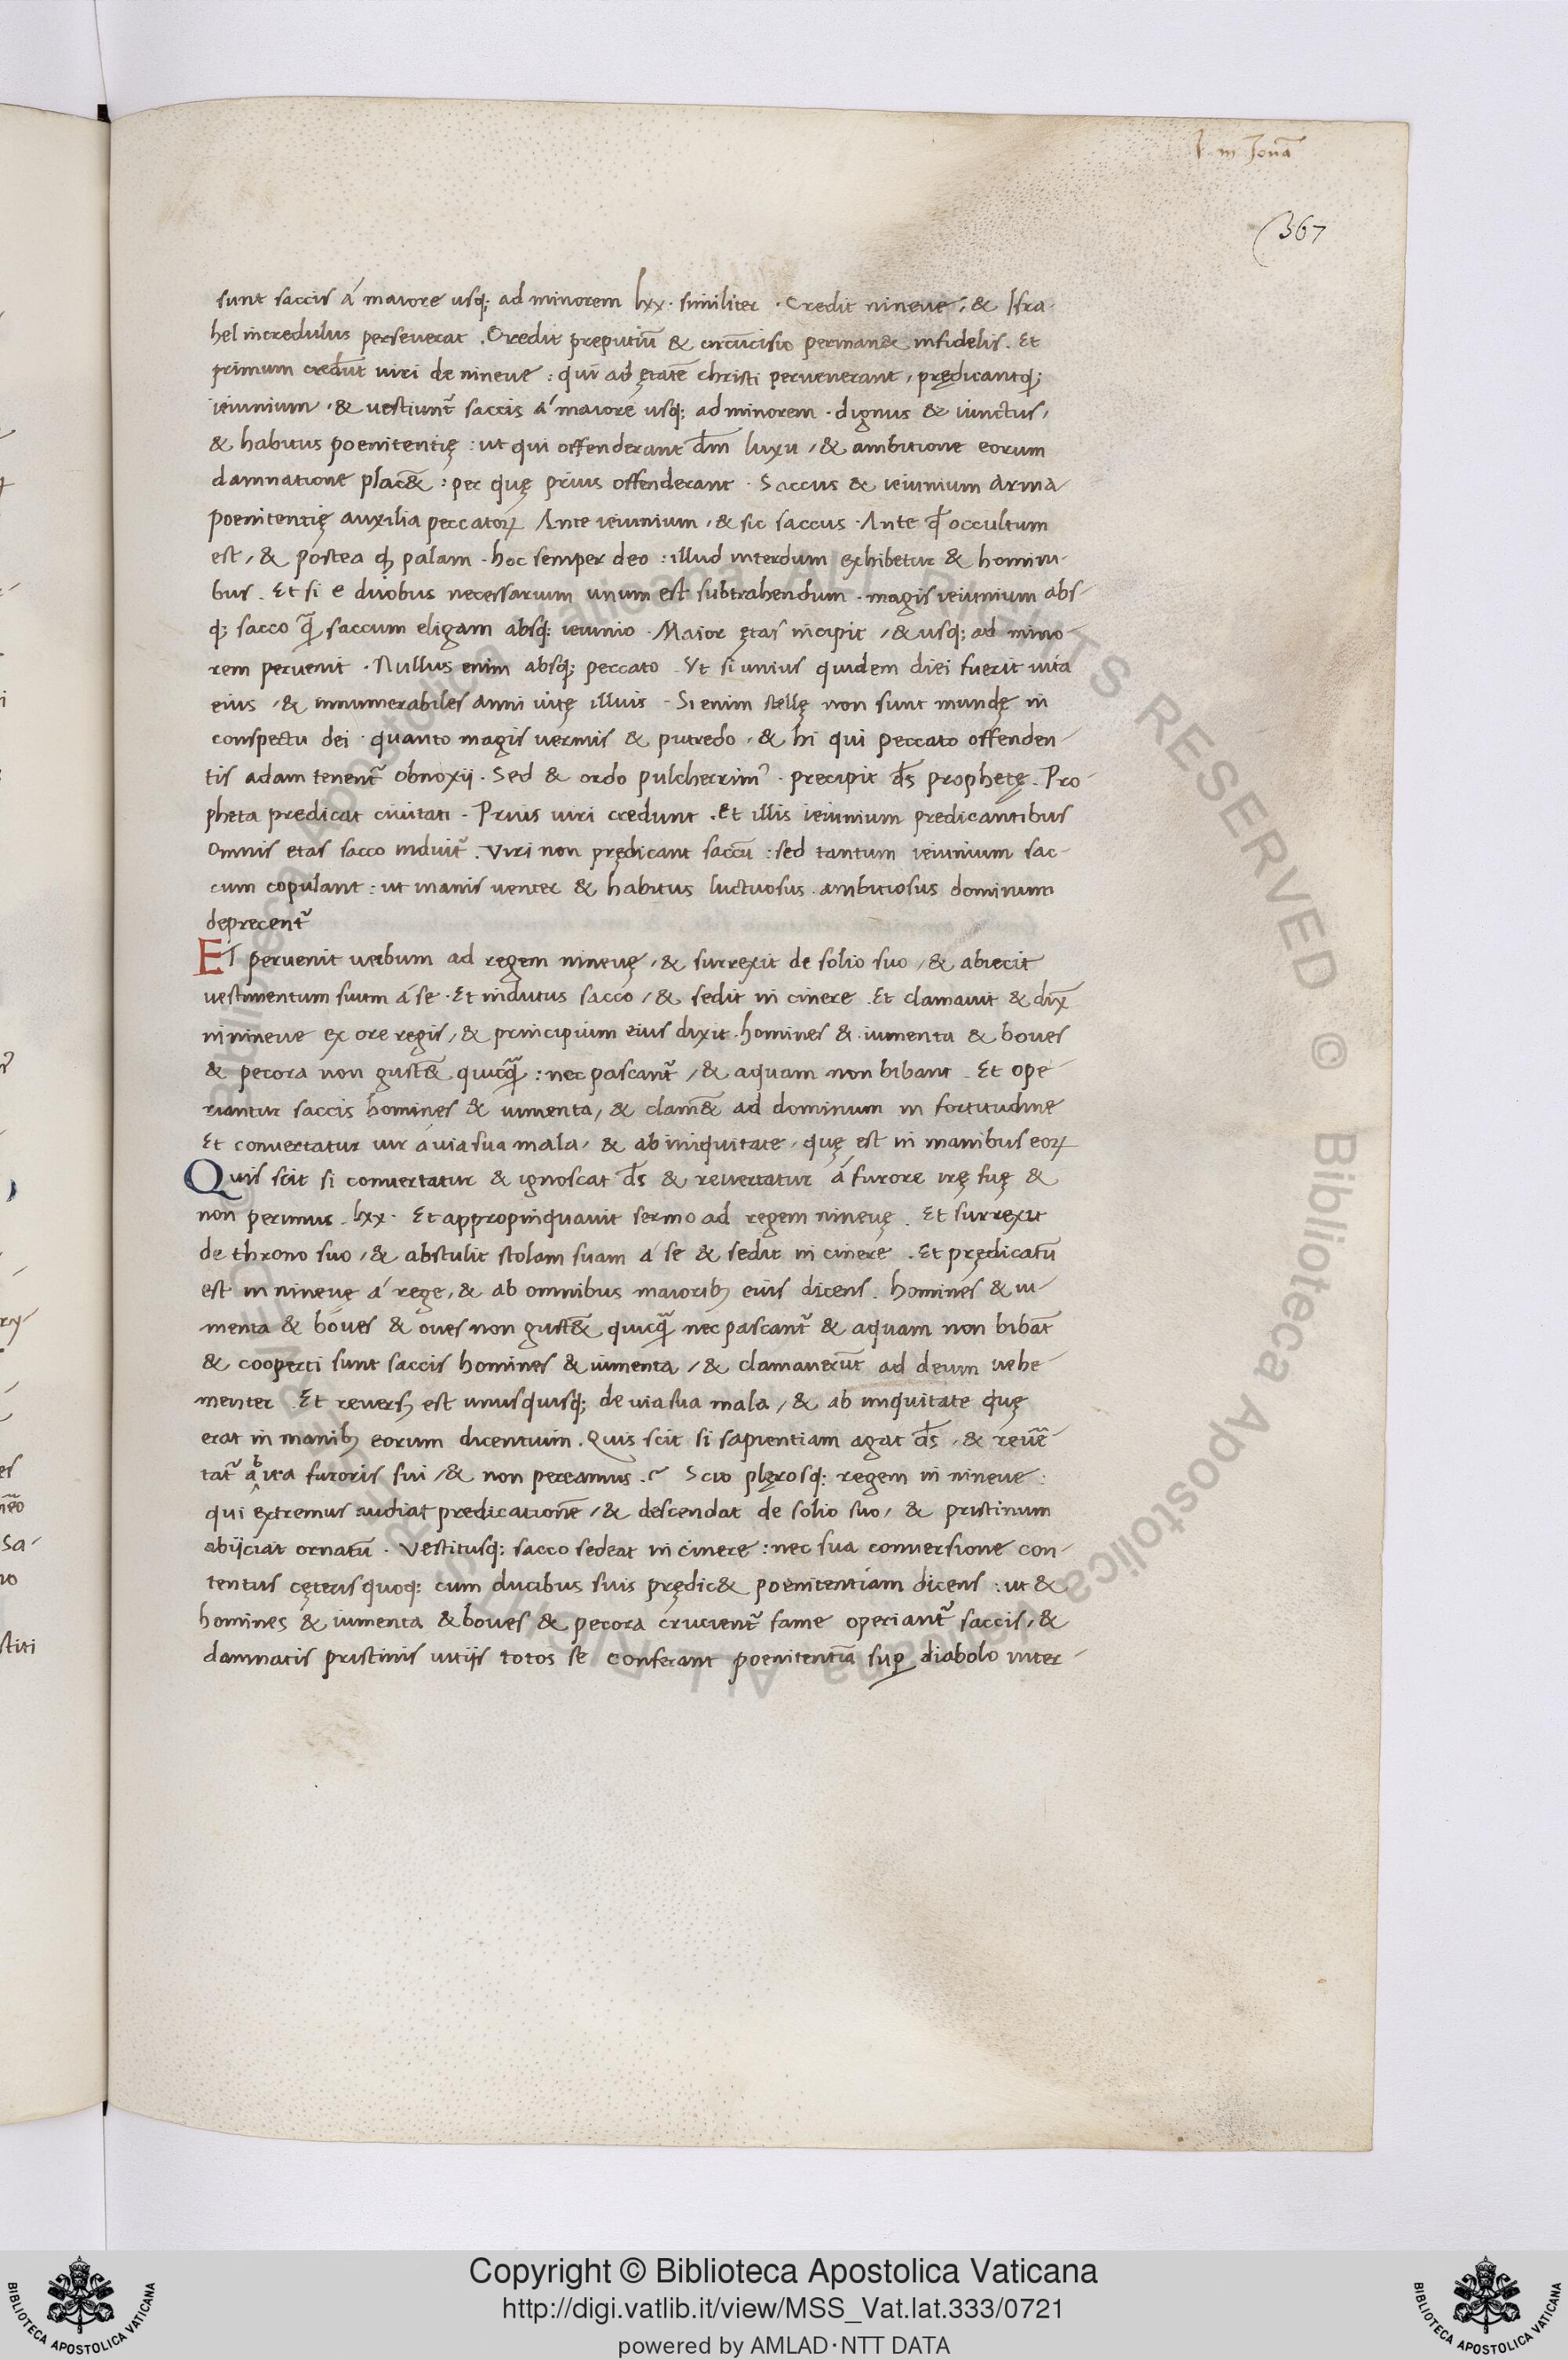 in Jonā
367
sunt saccis á maiore usq; ad minorem lxx. similiter. Credit nineue, & Isra-
hel incredulus perseuerat. Credit preputiū & circūcisio perman& infidelis. Et
primum credūt uiri de nineue: qui ad ętatē christi peruenerant, prędicantq;
ieiunium, & uestiunt᷑ saccis á maiore usq; ad minorem. dignus & iunctus,
& habitus poenitentię: ut qui offenderant dm̄ luxu, & ambitione eorum
damnatione placē&: per quę prius offenderant. Saccus & ieiunium arma
poenitentię auxilia peccatoꝝ Ante ieiunium, & sic saccus. Ante qđ occultum
est, & postea qđ palam. hoc semper deo: illud interdum exhibetur & homini-
bus. Et si e duobus necessarium unum est subtrahendum. magis ieiunium abs-
q; sacco q̄ saccum eligam absq; ieiunio. Maior ętas incipit, & usq; ad mino-
rem peruenit. Nullus enim absq; peccato. Vt si unius quidem diei fuerit uita
eius, & innumerabiles anni uitę illius. Si enim stellę non sunt mundę in
conspectu dei. quanto magis uermis & putredo, & hi qui peccato offenden-
tis adam tenent᷑ obnoxij. Sed & ordo pulcherrimꝰ. precipit ds̄ prophetę. Pro-
pheta predicat ciuitati. Prius uiri credunt. Et illis ieiunium predicantibus
omnis etas sacco induit᷑. Viri non prędicant saccū: sed tantum ieiunium sac-
cum copulant: ut inanis uenter & habitus luctuosus. ambitiosus dominum
deprecent᷑
ET peruenit uerbum ad regem nineuę, & surrexit de solio suo, & abiecit
uestimentum suum á se. Et indutus sacco, & sedit in cinere. Et clamauit & dix̄
in nineue ex ore regis, & principium eius dixit. homines & iumenta & boues
& pecora non gustē& quicq̄: nec pascant᷑, & aquam non bibant. Et ope-
riantur saccis homines & iumenta, & clamē& ad dominum in fortitudine
Et conuertatur uir á uia sua mala, & ab iniquitate, quę est in manibus eoꝝ
Quis scit si conuertatur & ignoscat ds̄ & reuertatur á furore irę suę &
non perimus. lxx. Et appropinquauit sermo ad regem nineuę. Et surrexit
de throno suo, & abstulit stolam suam á se & sedit in cinere. Et prędicatū
est in nineuę á rege, & ab omnibus maiorib; eius dicens. homines & iu-
menta & boues & oues non gustē& quicq̄ nec pascant᷑ & aquam non bibāt
& cooperti sunt saccis homines & iumenta, & clamauerūt ad deum uehe-
menter. Et reuersꝰ est unusquisq; de uia sua mala, & ab iniquitate quę
erat in manib; eorum dicentium. Quis scit si sapientiam agat ds̄, & reuer̄
tat᷑ ab ira furoris sui, & non pereamus.? Scio plęrosq; regem in nineue:
qui extremus audiat predicationē, & descendat de solio suo, & pristinum
abijciat ornatū. Vestitusq; sacco sedeat in cinere: nec sua conuersione con-
tentus cęteris quoq; cum ducibus suis prędic& poenitentiam dicens: ut &
homines & iumenta & boues & pecora crucient᷑ fame operiant᷑ saccis, &
damnatis pristinis uitijs totos se conferant poenitentiā suꝑ diabolo inter-
Copyright © Biblioteca Apostolica Vaticana
http://digi.vatlib.it/view/MSS_Vat.lat.333/0721
powered by AMLAD·NTT DATA